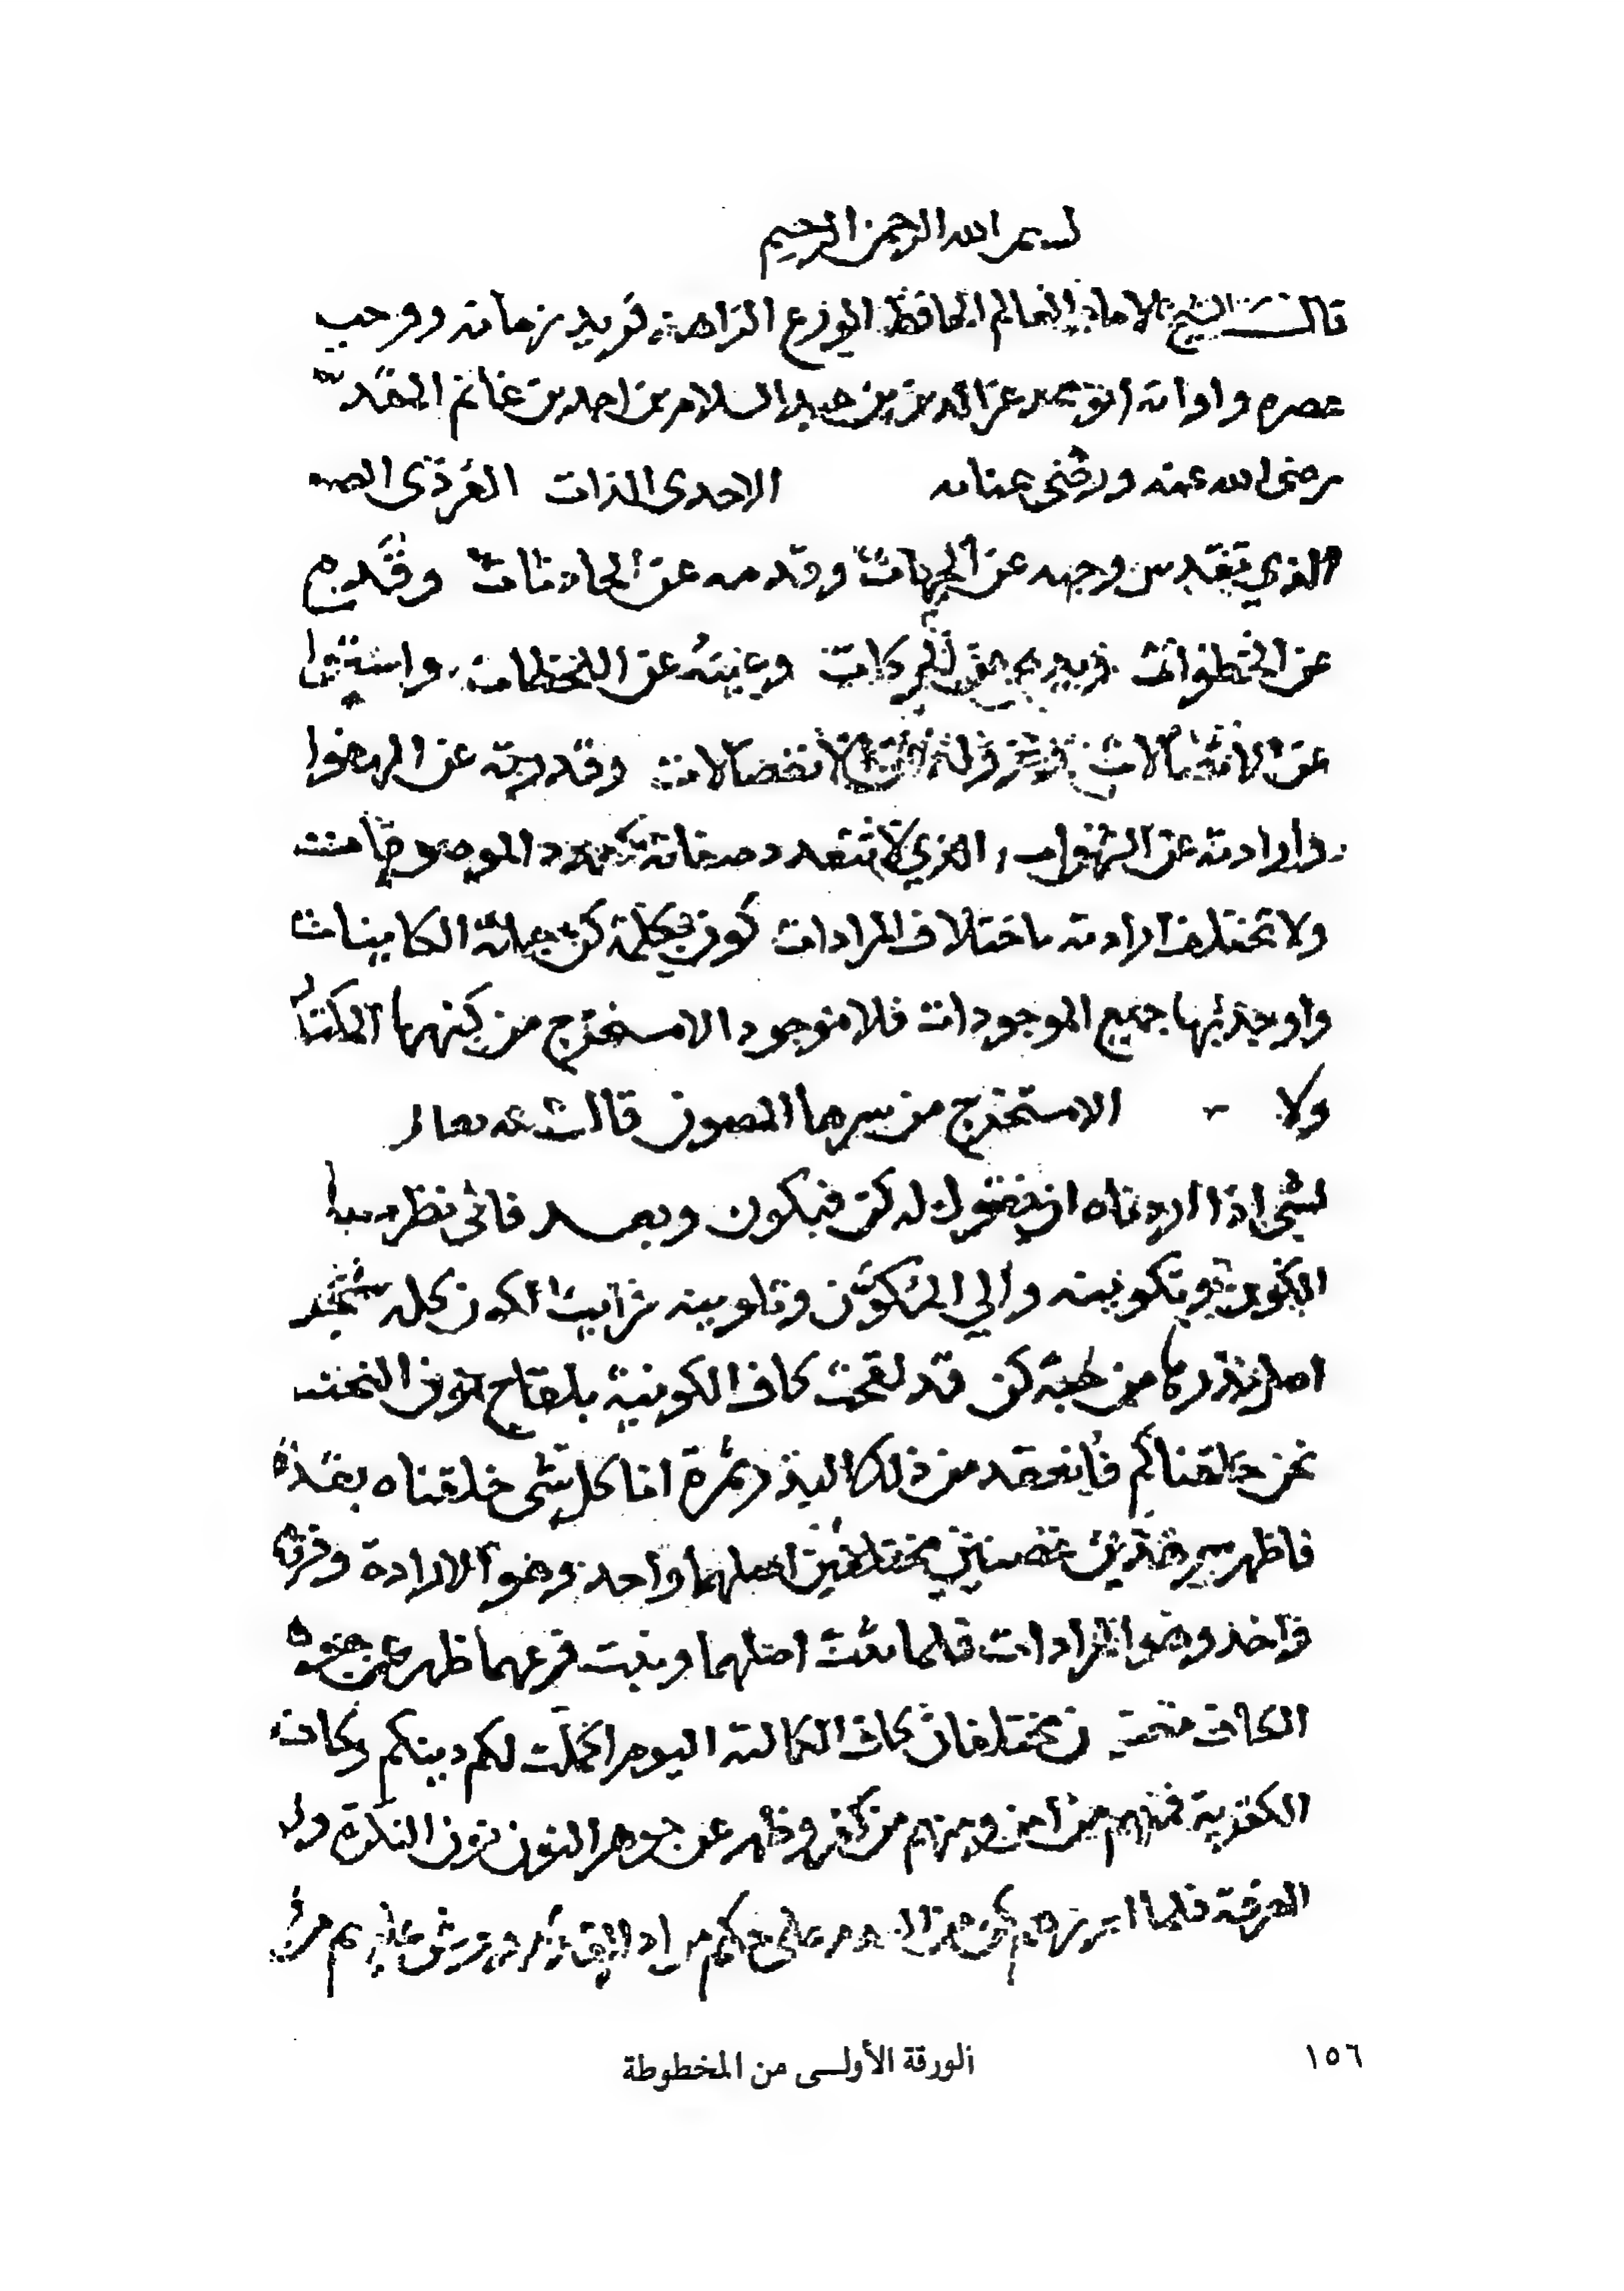 بسم الله الرحمن الرحيم
قال الشيخ الامام العالم الحافظ الورع الزاهد فريد زمانه ووحيد
عصره واوانه ابو محمد عز الدين بن عبد السلام بن احمد بن غانم المقدسي
رضي الله عنه ورضى عنا به الاحدى الذات الفردى الصفات
الذي تقدس وجهه عن الجهات وقدسه عن الحادثات وقدمه
عن الخطوات ويده عن الحركات وعينه عن اللحظات واستواه
عن الاتصالات عن الانفصالات وقدرته عن الهفوات
وارادته عن الشهوات الذي لا تتعدد صفاته بتعدد الموصوفات
ولا تختلف ارادته باختلاف المرادات كون بكلمة كن جملة الكاينات
واوجد بها جميع الموجودات فلا موجود الا مستخرج من كنهها المكنون
ولا الا مستخرج من سرها المصون قال الله تعالى
لشى اذا اردناه ان نقول له كن فيكون وبعد فانى نظرت الى
الكون وتكوينه والي المكون وتلوينه فرايت الكون كله شجرة
اصل نورها من حبة كن قد لقحت كاف الكونية بلقاح نون النحنية
نحن خلقناكم فانعقد من ذلك البذر ثمرة انا كل شى خلقناه بقدر
فاظهر من هذين غصنين مختلفين اصلهما واحد وهو الارادة وفرعها
واحد وهو المرادات فلما ثبت اصلهما ونبت فرعهما ظهر عن جوهر
الكاف مختلفان كاف الكمالية اليوم اكملت لكم دينكم وكاف
الكفرية فمنهم من امن ومنهم من كفر وظهر عن جوهر النون نون النكرة ونون
المعرفة فلما ابرزهم من كن العدم على حكم مراد القدم ورش عليهم من
١٥٦ الورقة الأولى من المخطوطة